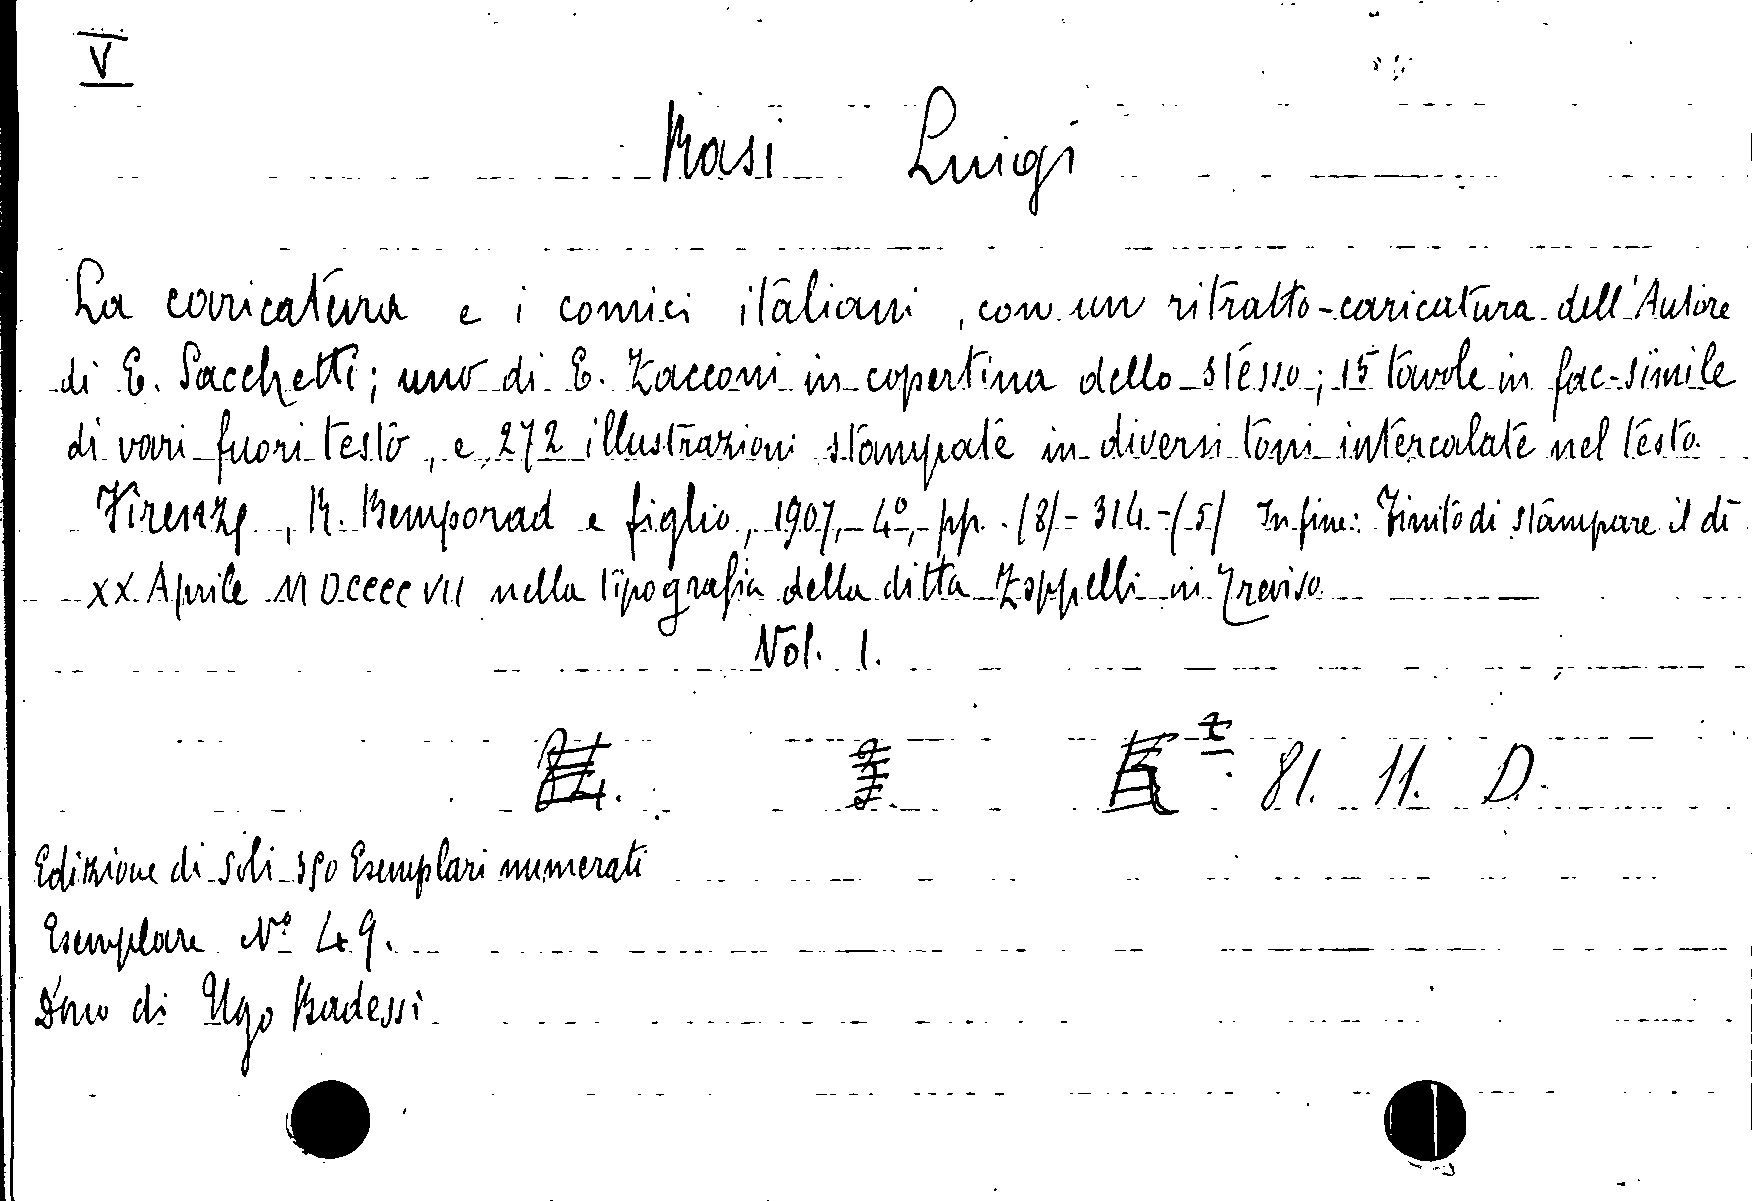 V
Rasi Luigi
La caricatura e i comici italiani, con un ritratto-caricatura dell'Autore
di E. Sacchetti; uno di E. Zacconi in copertina dello stesso; 15 tavole in fac-simile
di vari fuori testo, e 272 illustrazioni stampate in diversi toni intercalate nel testo.
Firenze, R. Bemporad e figlio, 1907, 4º, pp. (8)-314-(5) In fine: Finito di stampare il dì
XX Aprile MDCCCCVII nella tipografia della ditta Zoppelli in Treviso
Vol. 1.
81. 11. D.
Edizione di soli 350 Esemplari numerati
Esemplare Nº 49.
Dono di Ugo Badessi